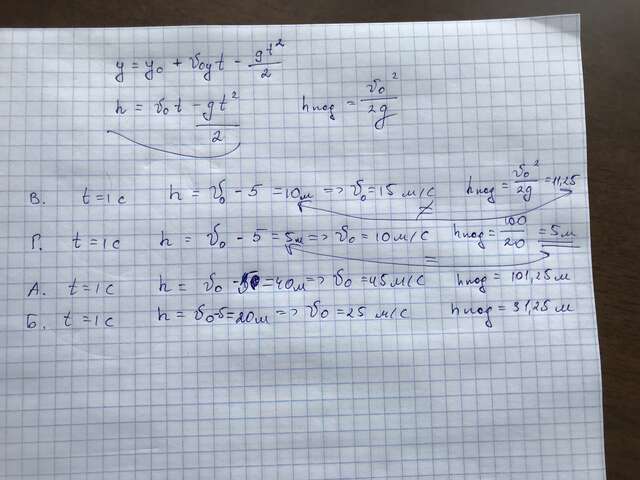 y = y₀ + v₀y t - gt²/2
h = v₀t - gt²/2    hпод = v₀²/2g
В. t = 1 с    h = v₀ - 5 = 10 м => v₀ = 15 м/с    hпод = v₀²/2g = 11,25
Г. t = 1 с    h = v₀ - 5 = 5 м => v₀ = 10 м/с    hпод = 100/20 = 5 м
А. t = 1 с    h = v₀ - 5 = 40 м => v₀ = 45 м/с    hпод = 101,25 м
Б. t = 1 с    h = v₀ - 5 = 20 м => v₀ = 25 м/с    hпод = 31,25 м